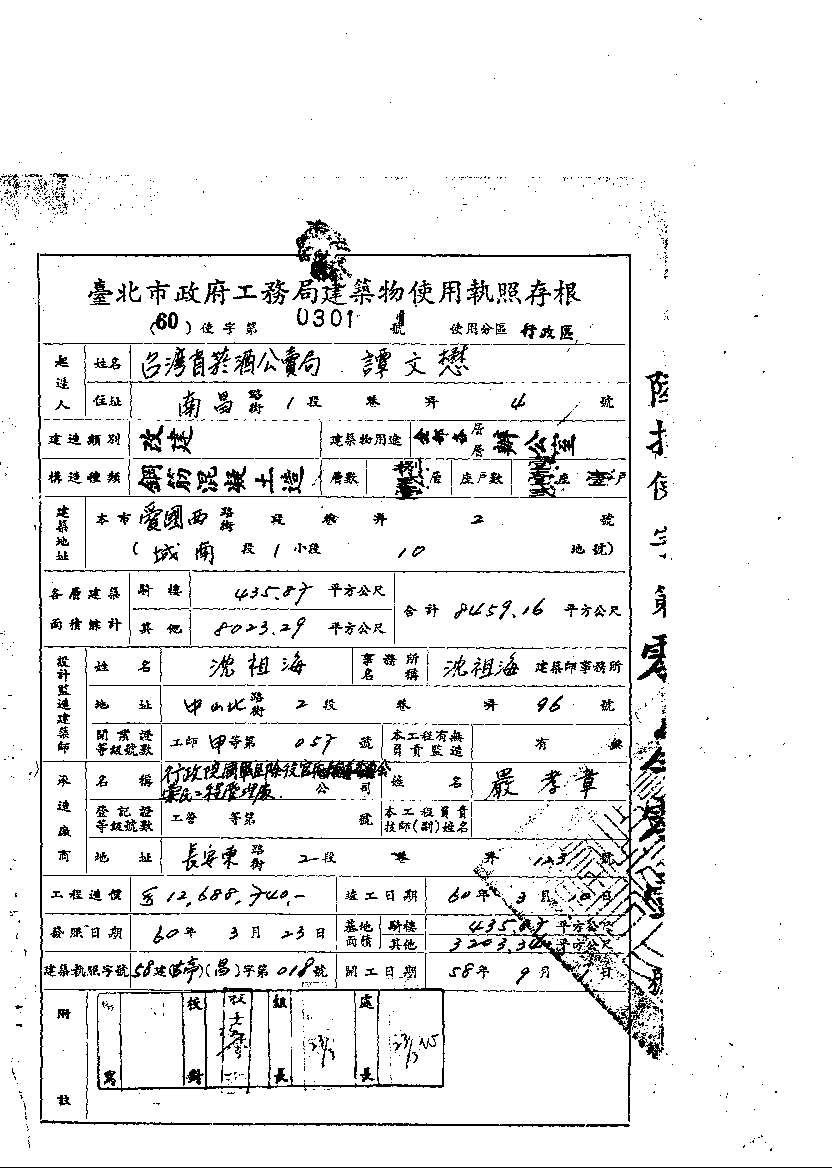 臺北市政府工務局建築物使用執照存根
(60)使字第 0301 號 使用分區 行政區
起造人 姓名 台湾省菸酒公賣局 譚文懋
住址 南昌 路街 1 段 巷 弄 4 號
建造類別 改建 建築物用途 全部各層 層 辦公室
構造種類 鋼筋混凝土造 層數 捌 層 座戶數 座 戶
建築地址 本市 愛國西 路街 段 巷 弄 2 號
(城南 段 1 小段 10 地號)
各層建築面積總計 騎樓 435.87 平方公尺 合計 8459.16 平方公尺
其他 8023.29 平方公尺
設計監造建築師 姓名 沈祖海 事務所名稱 沈祖海 建築師事務所
地址 中山北 路街 2 段 巷 弄 96 號
開業證等級號數 工師 甲 等第 057 號 本工程有無負責監造 有 無
承造廠商 名稱 行政院國 除役官兵 公司 姓名 嚴孝章
榮民工程管理處
登記證等級號數 工營 等第 號 本工程負責技師(副)姓名
地址 長安東 路街 2 段 巷 弄 123 號
工程造價 12,688,740.- 竣工日期 60 年 3 月 10 日
發照日期 60 年 3 月 23 日 基地面積 騎樓 435.87 平方公尺
其他 3203.34 平方公尺
建築執照字號 58建( )(昌)字第 018 號 開工日期 58 年 9 月 日
附註 寫 校對 組長 處長